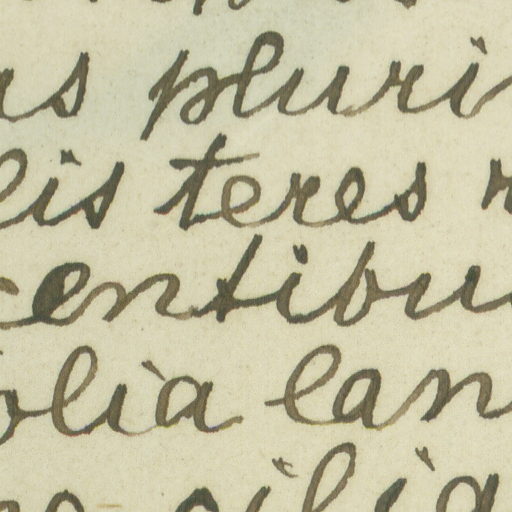 as pluri
lis teres r
centibu
olia lan